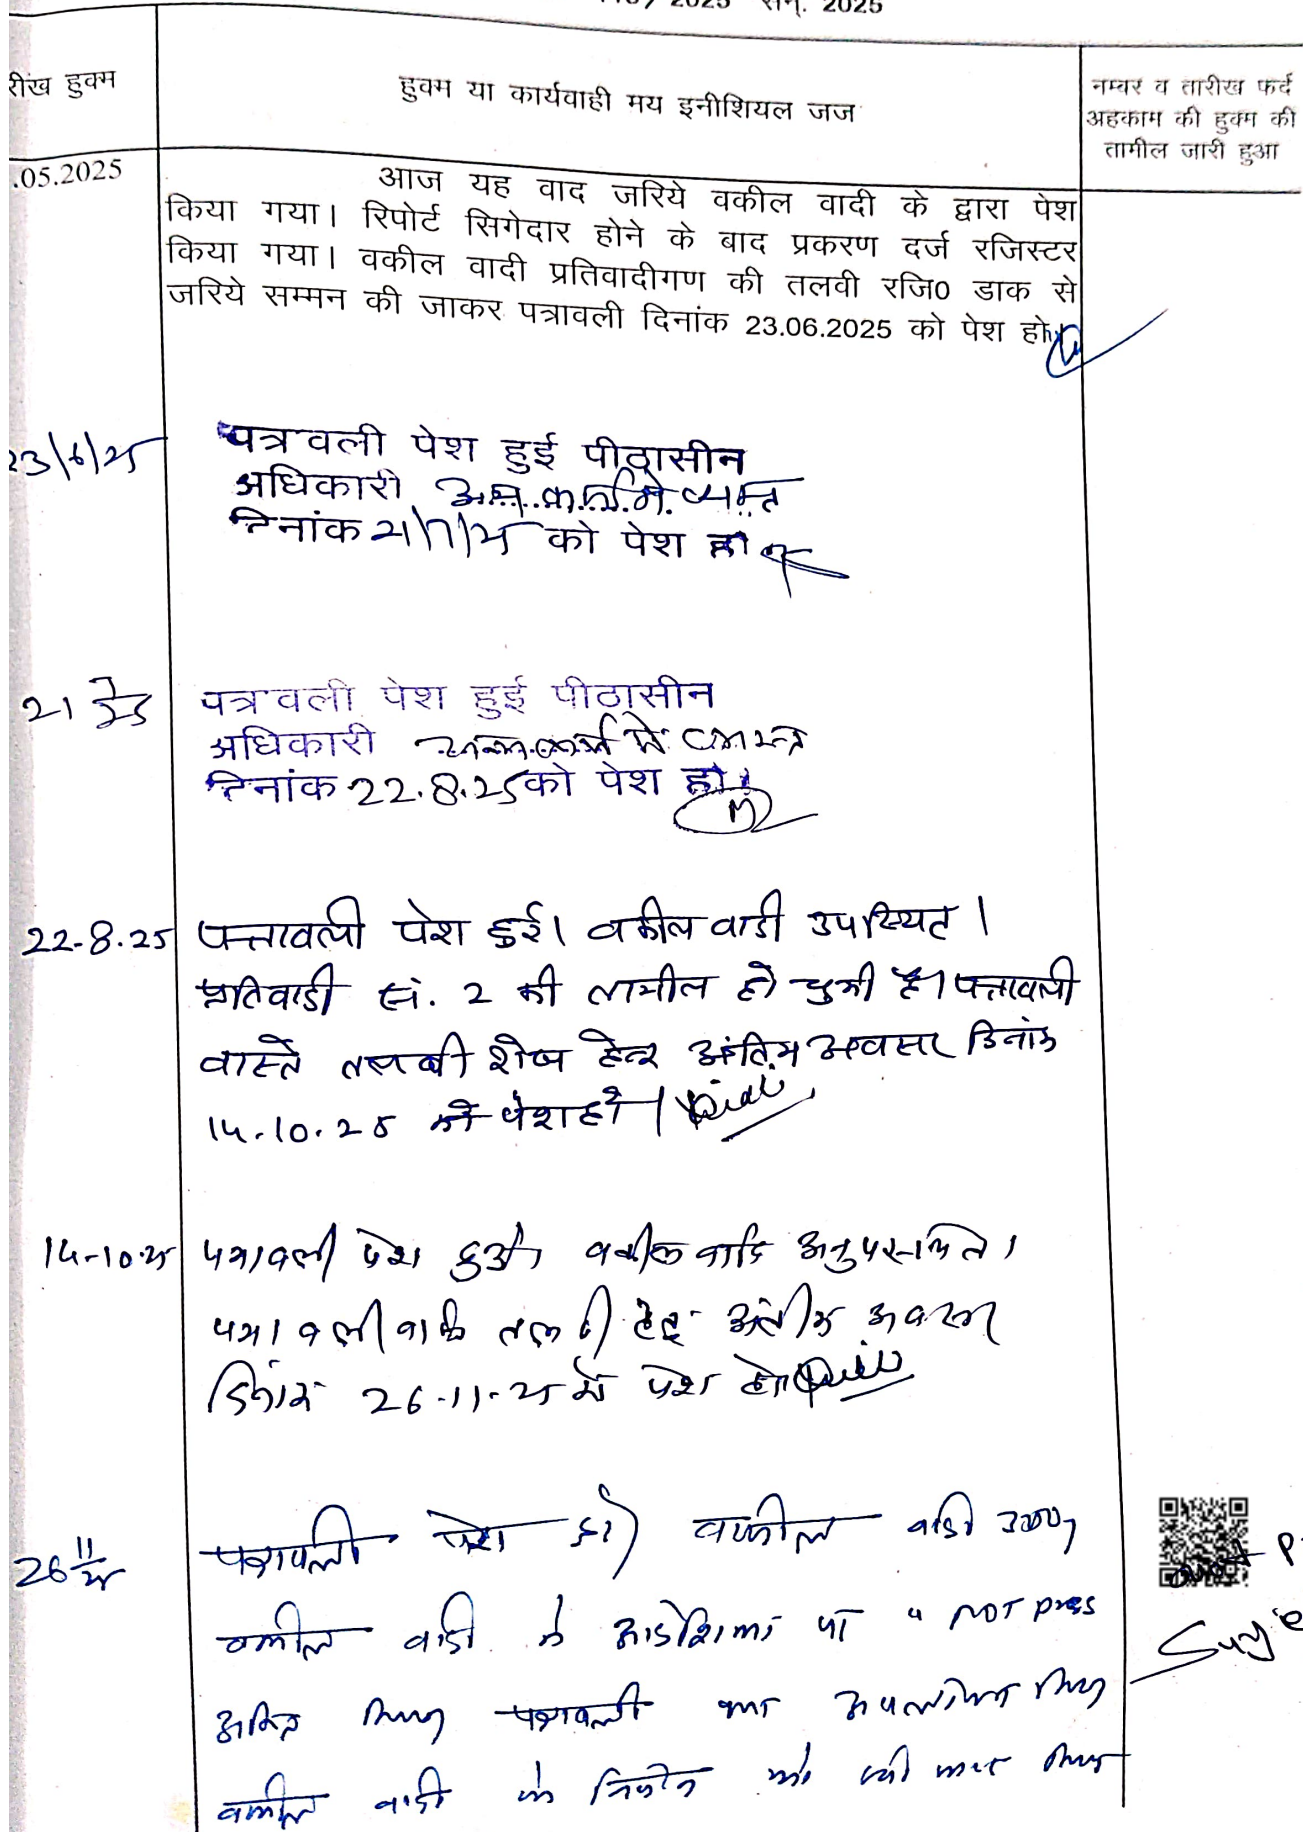 2025 सन्. 2025
रीख हुक्म
हुक्म या कार्यवाही मय इनीशियल जज
नम्बर व तारीख फर्द
अहकाम की हुक्म की
तामील जारी हुआ
.05.2025
आज यह वाद जरिये वकील वादी के द्वारा पेश
किया गया। रिपोर्ट सिगेदार होने के बाद प्रकरण दर्ज रजिस्टर
किया गया। वकील वादी प्रतिवादीगण की तलवी रजि0 डाक से
जरिये सम्मन की जाकर पत्रावली दिनांक 23.06.2025 को पेश हो।
23/6/25
पत्रवली पेश हुई पीठासीन
अधिकारी अन्य कार्य मे व्यस्त
दिनांक 21/7/25 को पेश हो
21 7/25
पत्रवली पेश हुई पीठासीन
अधिकारी अन्य कार्य मे व्यस्त
दिनांक 22.8.25 को पेश हो।
22.8.25
पत्रावली पेश हुई। वकील वादी उपस्थित।
प्रतिवादी सं. 2 की तामील हो चुकी है। पत्रावली
वास्ते तलबी शेष हेतु अंतिम अवसर दिनांक
14.10.25 को पेश हो।
14-10-25
पत्रावली पेश हुई। वकील वादि अनुपस्थित।
पत्रावली वास्ते तलबी हेतु अंतिम अवसर
दिनांक 26-11-25 को पेश हो
26 11/25
पत्रावली पेश हो वकील वादी
वकील वादी ने आदेशिका पर "NOT press
अंकित किया पत्रावली का अवलोकन किया
वकील वादी के निवेदन को स्वीकार किया